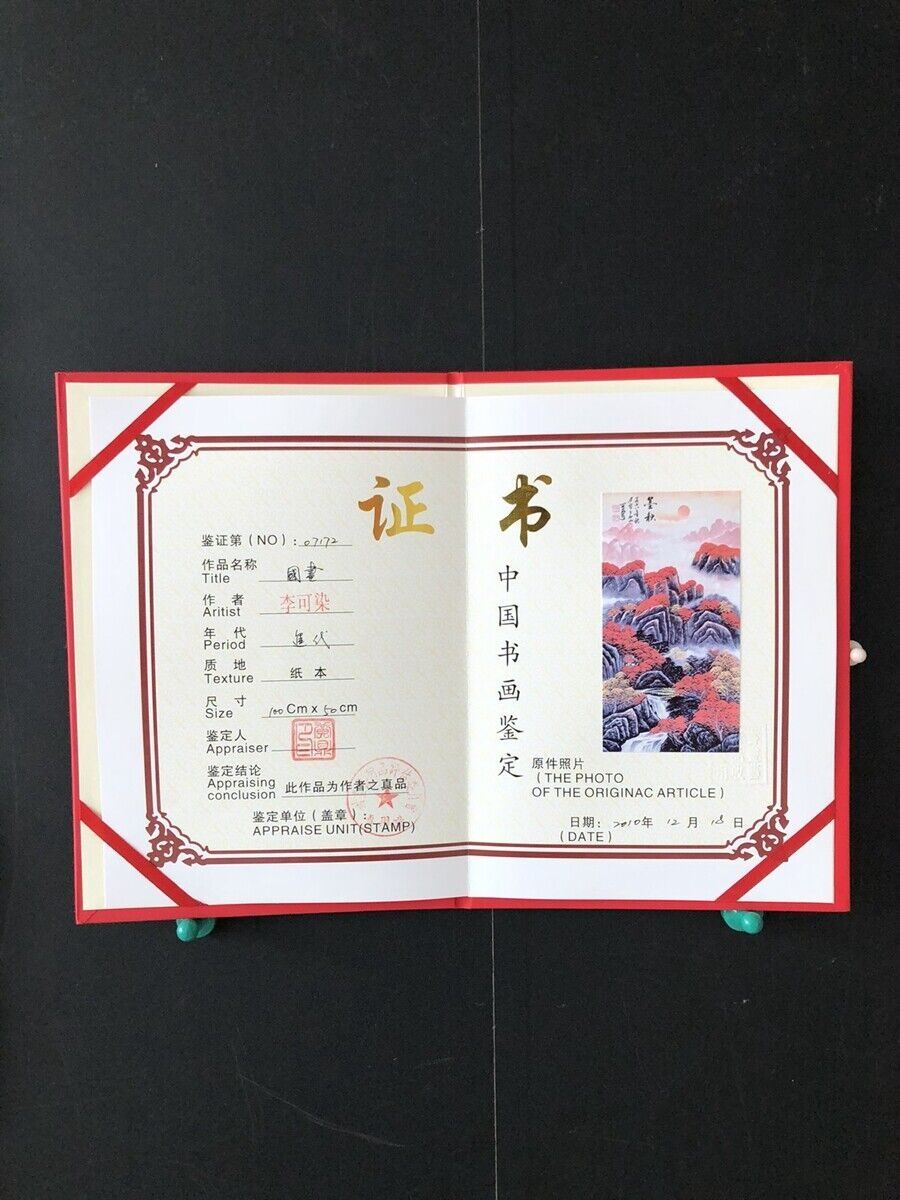 证 书
鉴证第（NO）：07172
作品名称
Title 國畫
作 者
Aritist 李可染
年 代
Period 近代
质 地
Texture 纸本
尺 寸
Size 100 Cm x 50 cm
鉴定人
Appraiser
鉴定结论
Appraising
conclusion 此作品为作者之真品
鉴定单位（盖章）：
APPRAISE UNIT(STAMP)
中国书画鉴定
原件照片
（THE PHOTO
OF THE ORIGINAC ARTICLE）
日期：2010年 12月 18日
（DATE）